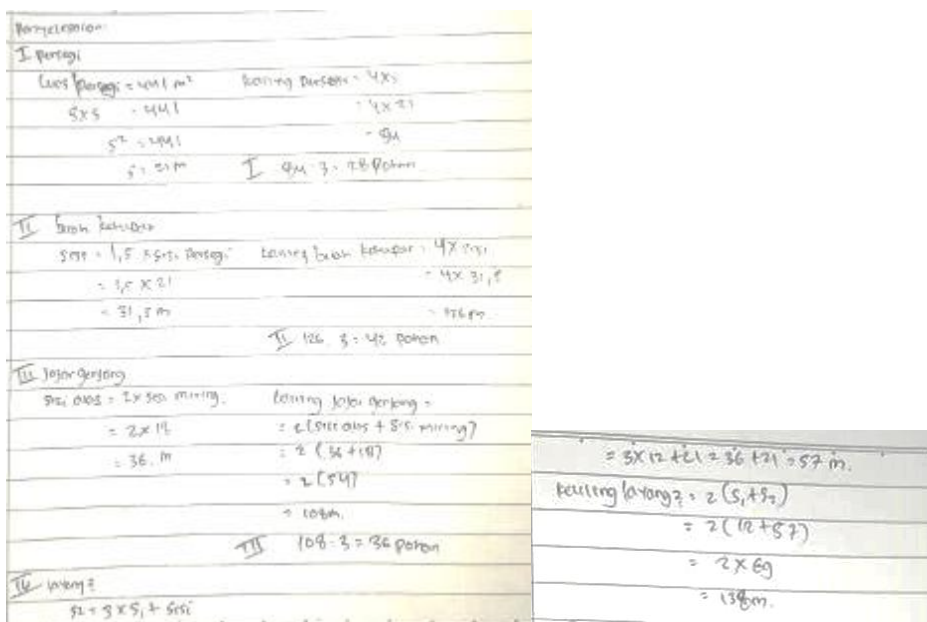 Penyelesaian
I persegi
Luas persegi = 441 m²
s x s = 441
s² = 441
s = 21 m
keliling persegi = 4 x s
= 4 x 21
= 84
I 84 : 3 = 28 Pohon
II belah ketupat
sisi = 1,5 x sisi persegi
= 1,5 x 21
= 31,5 m
keliling belah ketupat = 4 x sisi
= 4 x 31,5
= 126 m
II 126 : 3 = 42 pohon
III Jajar genjang
sisi alas = 2 x sisi miring
= 2 x 18
= 36 m
keliling jajar genjang =
= 2 (sisi alas + sisi miring)
= 2 (36 + 18)
= 2 (54)
= 108 m.
III 108 : 3 = 36 pohon
IV layang2
s2 = 3 x s₁ + sisi
= 3 x 12 + 21 = 36 + 21 = 57 m.
keliling layang2 = 2 (s₁ + s₂)
= 2 (12 + 57)
= 2 x 69
= 138 m.